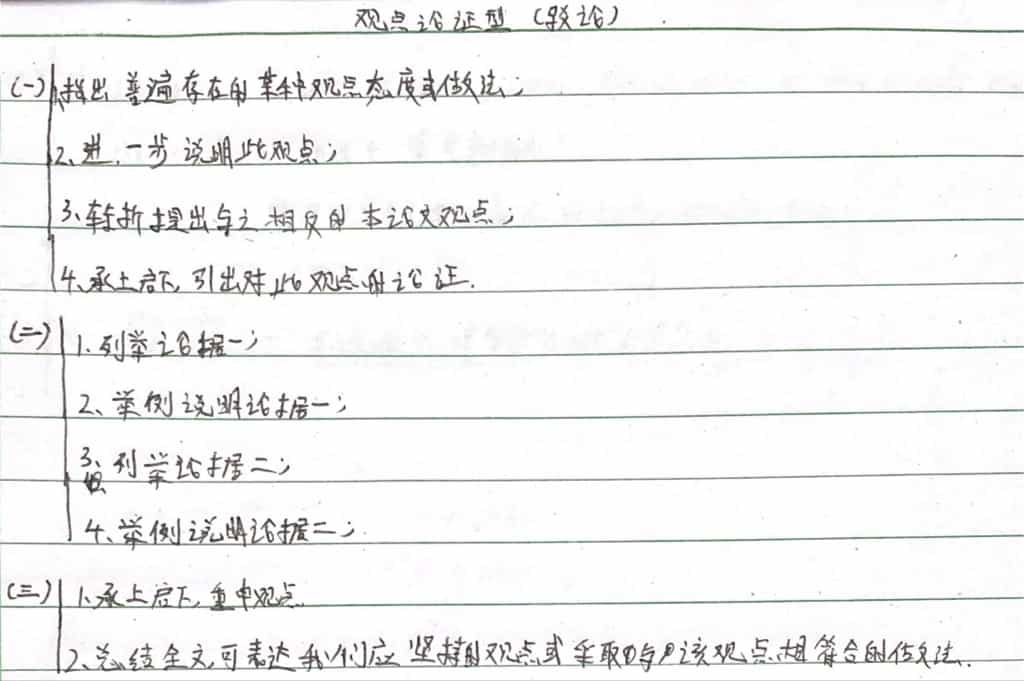 观点论证型（驳论）
(一) 1.指出普遍存在的某种观点态度或做法；
2、进一步说明此观点；
3、转折提出与之相反的本论文观点；
4、承上启下,引出对此观点的论证.
(二) 1、列举论据一；
2、举例说明论据一；
3、列举论据二；
4、举例说明论据二；
(三) 1、承上启下,重申观点
2、总结全文,可表达我们应坚持的观点或采取与该观点相符合的做法.